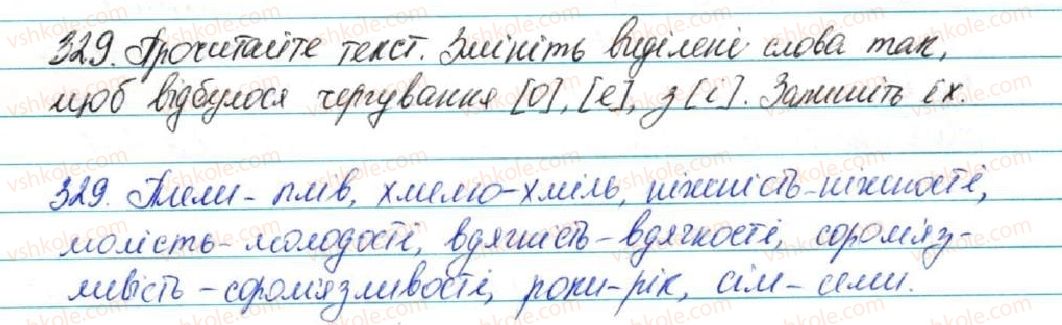 329. Прочитайте текст. Змініть виділені слова так,
щоб відбулося чергування [о], [е], з [і]. Запишіть їх.
329. - плів, хмелю-хміль, ніжність-ніжності,
молість-молодості, вдячність-вдячності, сором'яз-
ливість-сором'язливості, роки-рік, сім-семи.